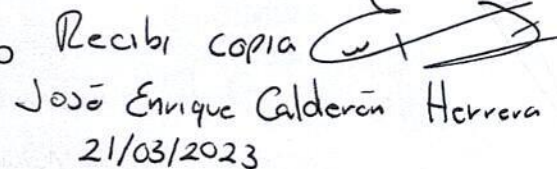 Recibi copia
José Enrique Calderón Herrera
21/03/2023